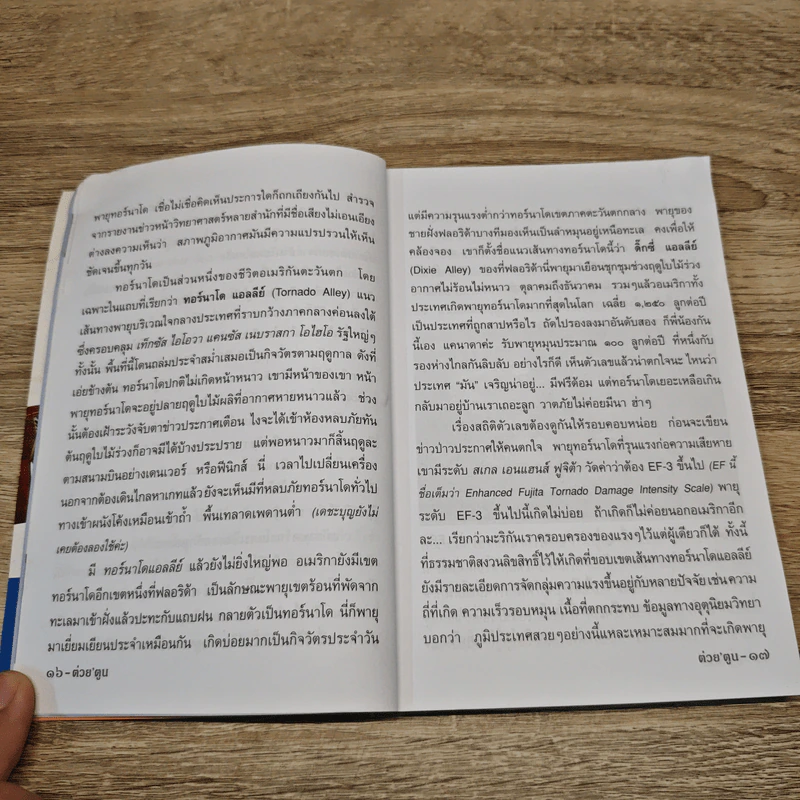 พายุทอร์นาโด เชื่อไม่เชื่อคิดเห็นประการใดก็ถกเถียงกันไป สำรวจ
จากรายงานข่าวหน้าวิทยาศาสตร์หลายสำนักที่มีชื่อเสียงไม่เอนเอียง
ต่างลงความเห็นว่า สภาพภูมิอากาศมันมีความแปรปรวนให้เห็น
ชัดเจนขึ้นทุกวัน
ทอร์นาโดเป็นส่วนหนึ่งของชีวิตอเมริกันตะวันตก โดย
เฉพาะในแถบที่เรียกว่า ทอร์นาโด แอลลีย์ (Tornado Alley) แนว
เส้นทางพายุบริเวณใจกลางประเทศที่ราบกว้างภาคกลางค่อนลงใต้
ซึ่งครอบคลุม เท็กซัส ไอโอวา แคนซัส เนบราสกา โอไฮโอ รัฐใหญ่ๆ
ทั้งนั้น พื้นที่นี้โดนถล่มประจำสม่ำเสมอเป็นกิจวัตรตามฤดูกาล ดังที่
เอ่ยข้างต้น ทอร์นาโดปกติไม่เกิดหน้าหนาว เขามีหน้าของเขา หน้า
พายุทอร์นาโดจะอยู่ปลายฤดูใบไม้ผลิที่อากาศหายหนาวแล้ว ช่วง
นั้นต้องเฝ้าระวังจับตาข่าวประกาศเตือน ไงจะได้เข้าห้องหลบภัยทัน
ต้นฤดูใบไม้ร่วงก็อาจมีได้บ้างประปราย แต่พอหนาวมาก็สิ้นฤดูละ
ตามสนามบินอย่างเดนเวอร์ หรือฟีนิกส์ นี่ เวลาไปเปลี่ยนเครื่อง
นอกจากต้องเดินไกลหาเกทแล้ว ยังจะเห็นมีที่หลบภัยทอร์นาโดทั่วไป
ทางเข้าผนังโค้งเหมือนเข้าถ้ำ พื้นเทลาดเพดานต่ำ (เดชะบุญยังไม่
เคยต้องลองใช้ค่ะ)
มี ทอร์นาโดแอลลีย์ แล้วยังไม่ยิ่งใหญ่พอ อเมริกายังมีเขต
ทอร์นาโดอีกเขตหนึ่งที่ฟลอริด้า เป็นลักษณะพายุเขตร้อนที่พัดจาก
ทะเลมาเข้าฝั่งแล้วปะทะกับแถบฝน กลายตัวเป็นทอร์นาโด นี่ก็พายุ
มาเยี่ยมเยียนประจำเหมือนกัน เกิดบ่อยมากเป็นกิจวัตรประจำวัน
๑๖-ต่วย'ตูน
แต่มีความรุนแรงต่ำกว่าทอร์นาโดเขตภาคตะวันตกกลาง พายุของ
ชายฝั่งฟลอริด้าบางทีมองเห็นเป็นลำหมุนอยู่เหนือทะเล คงเพื่อให้
คล้องจอง เขาก็ตั้งชื่อแนวเส้นทางทอร์นาโดนี้ว่า ดิ๊กซี่ แอลลีย์
(Dixie Alley) ของที่ฟลอริด้านี่พายุมาเยือนชุกชุมช่วงฤดูใบไม้ร่วง
อากาศไม่ร้อนไม่หนาว ตุลาคมถึงธันวาคม รวมๆแล้วอเมริกาทั้ง
ประเทศเกิดพายุทอร์นาโดมากที่สุดในโลก เฉลี่ย ๑,๒๕๐ ลูกต่อปี
เป็นประเทศที่ถูกสาปหรือไร ถัดไปรองลงมาอันดับสอง ก็ที่น้องกัน
นี้เอง แคนาดาค่ะ รับพายุหมุนประมาณ ๑๐๐ ลูกต่อปี ที่หนึ่งกับ
รองห่างไกลกันลิบลับ อย่างไรก็ดี เห็นตัวเลขแล้วน่าตกใจนะ ไหนว่า
ประเทศ "มัน" เจริญน่าอยู่... มีฟรีด้อม แต่ทอร์นาโดเยอะเหลือเกิน
กลับมาอยู่บ้านเราเถอะลูก วาตภัยไม่ค่อยมีนา ฮ่าๆ
เรื่องสถิติตัวเลขต้องดูกันให้รอบคอบหน่อย ก่อนจะเขียน
ข่าวป่าวประกาศให้คนตกใจ พายุทอร์นาโดที่รุนแรงก่อความเสียหาย
เขามีระดับ สเกล เอนแฮนส์ ฟูจิต้า วัดค่าว่าต้อง EF-3 ขึ้นไป (EF นี้
ชื่อเต็มว่า Enhanced Fujita Tornado Damage Intensity Scale) พายุ
ระดับ EF-3 ขึ้นไปนี้เกิดไม่บ่อย ถ้าเกิดก็ไม่ค่อยนอกอเมริกาอีก
ละ... เรียกว่ามะริกันเราครอบครองของแรงๆไว้แต่ผู้เดียวก็ได้ ทั้งนี้
ที่ธรรมชาติสงวนลิขสิทธิ์ไว้ให้เกิดที่ขอบเขตเส้นทางทอร์นาโดแอลลีย์
ยังมีรายละเอียดการจัดกลุ่มความแรงขึ้นอยู่กับหลายปัจจัย เช่น ความ
ถี่ที่เกิด ความเร็วรอบหมุน เนื้อที่ตกกระทบ ข้อมูลทางอุตุนิยมวิทยา
บอกว่า ภูมิประเทศสวยๆอย่างนี้แหละเหมาะสมมากที่จะเกิดพายุ
ต่วย'ตูน-๑๗